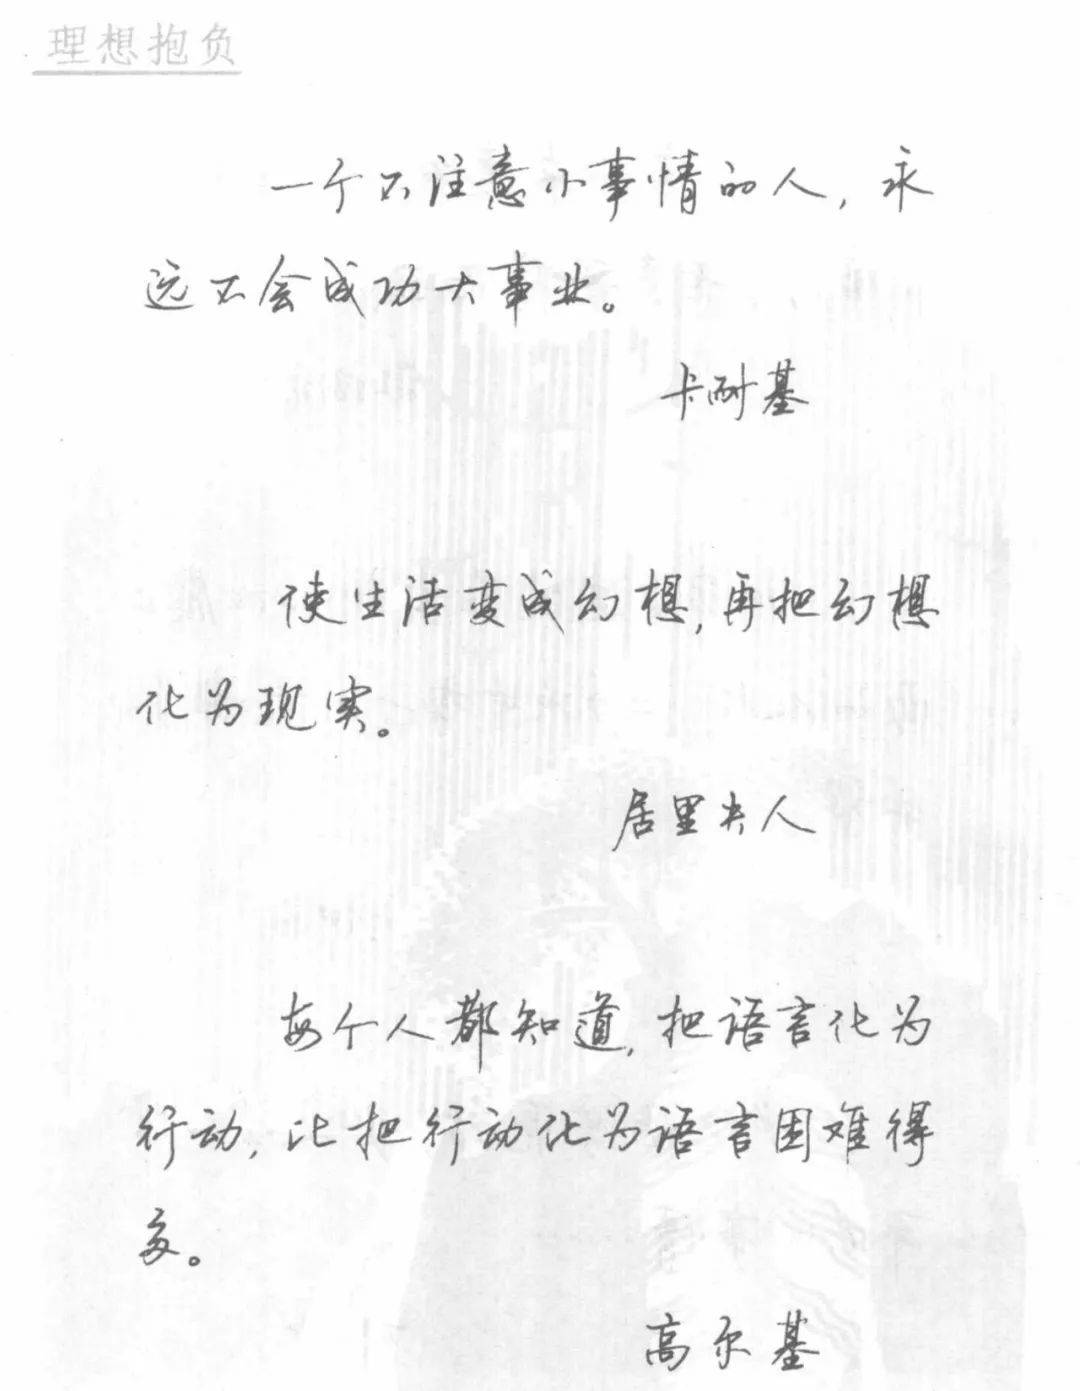 理想抱负
一个不注意小事情的人，永
远不会成功大事业。
卡耐基
使生活变成幻想，再把幻想
化为现实。
居里夫人
每个人都知道，把语言化为
行动，比把行动化为语言困难得
多。
高尔基